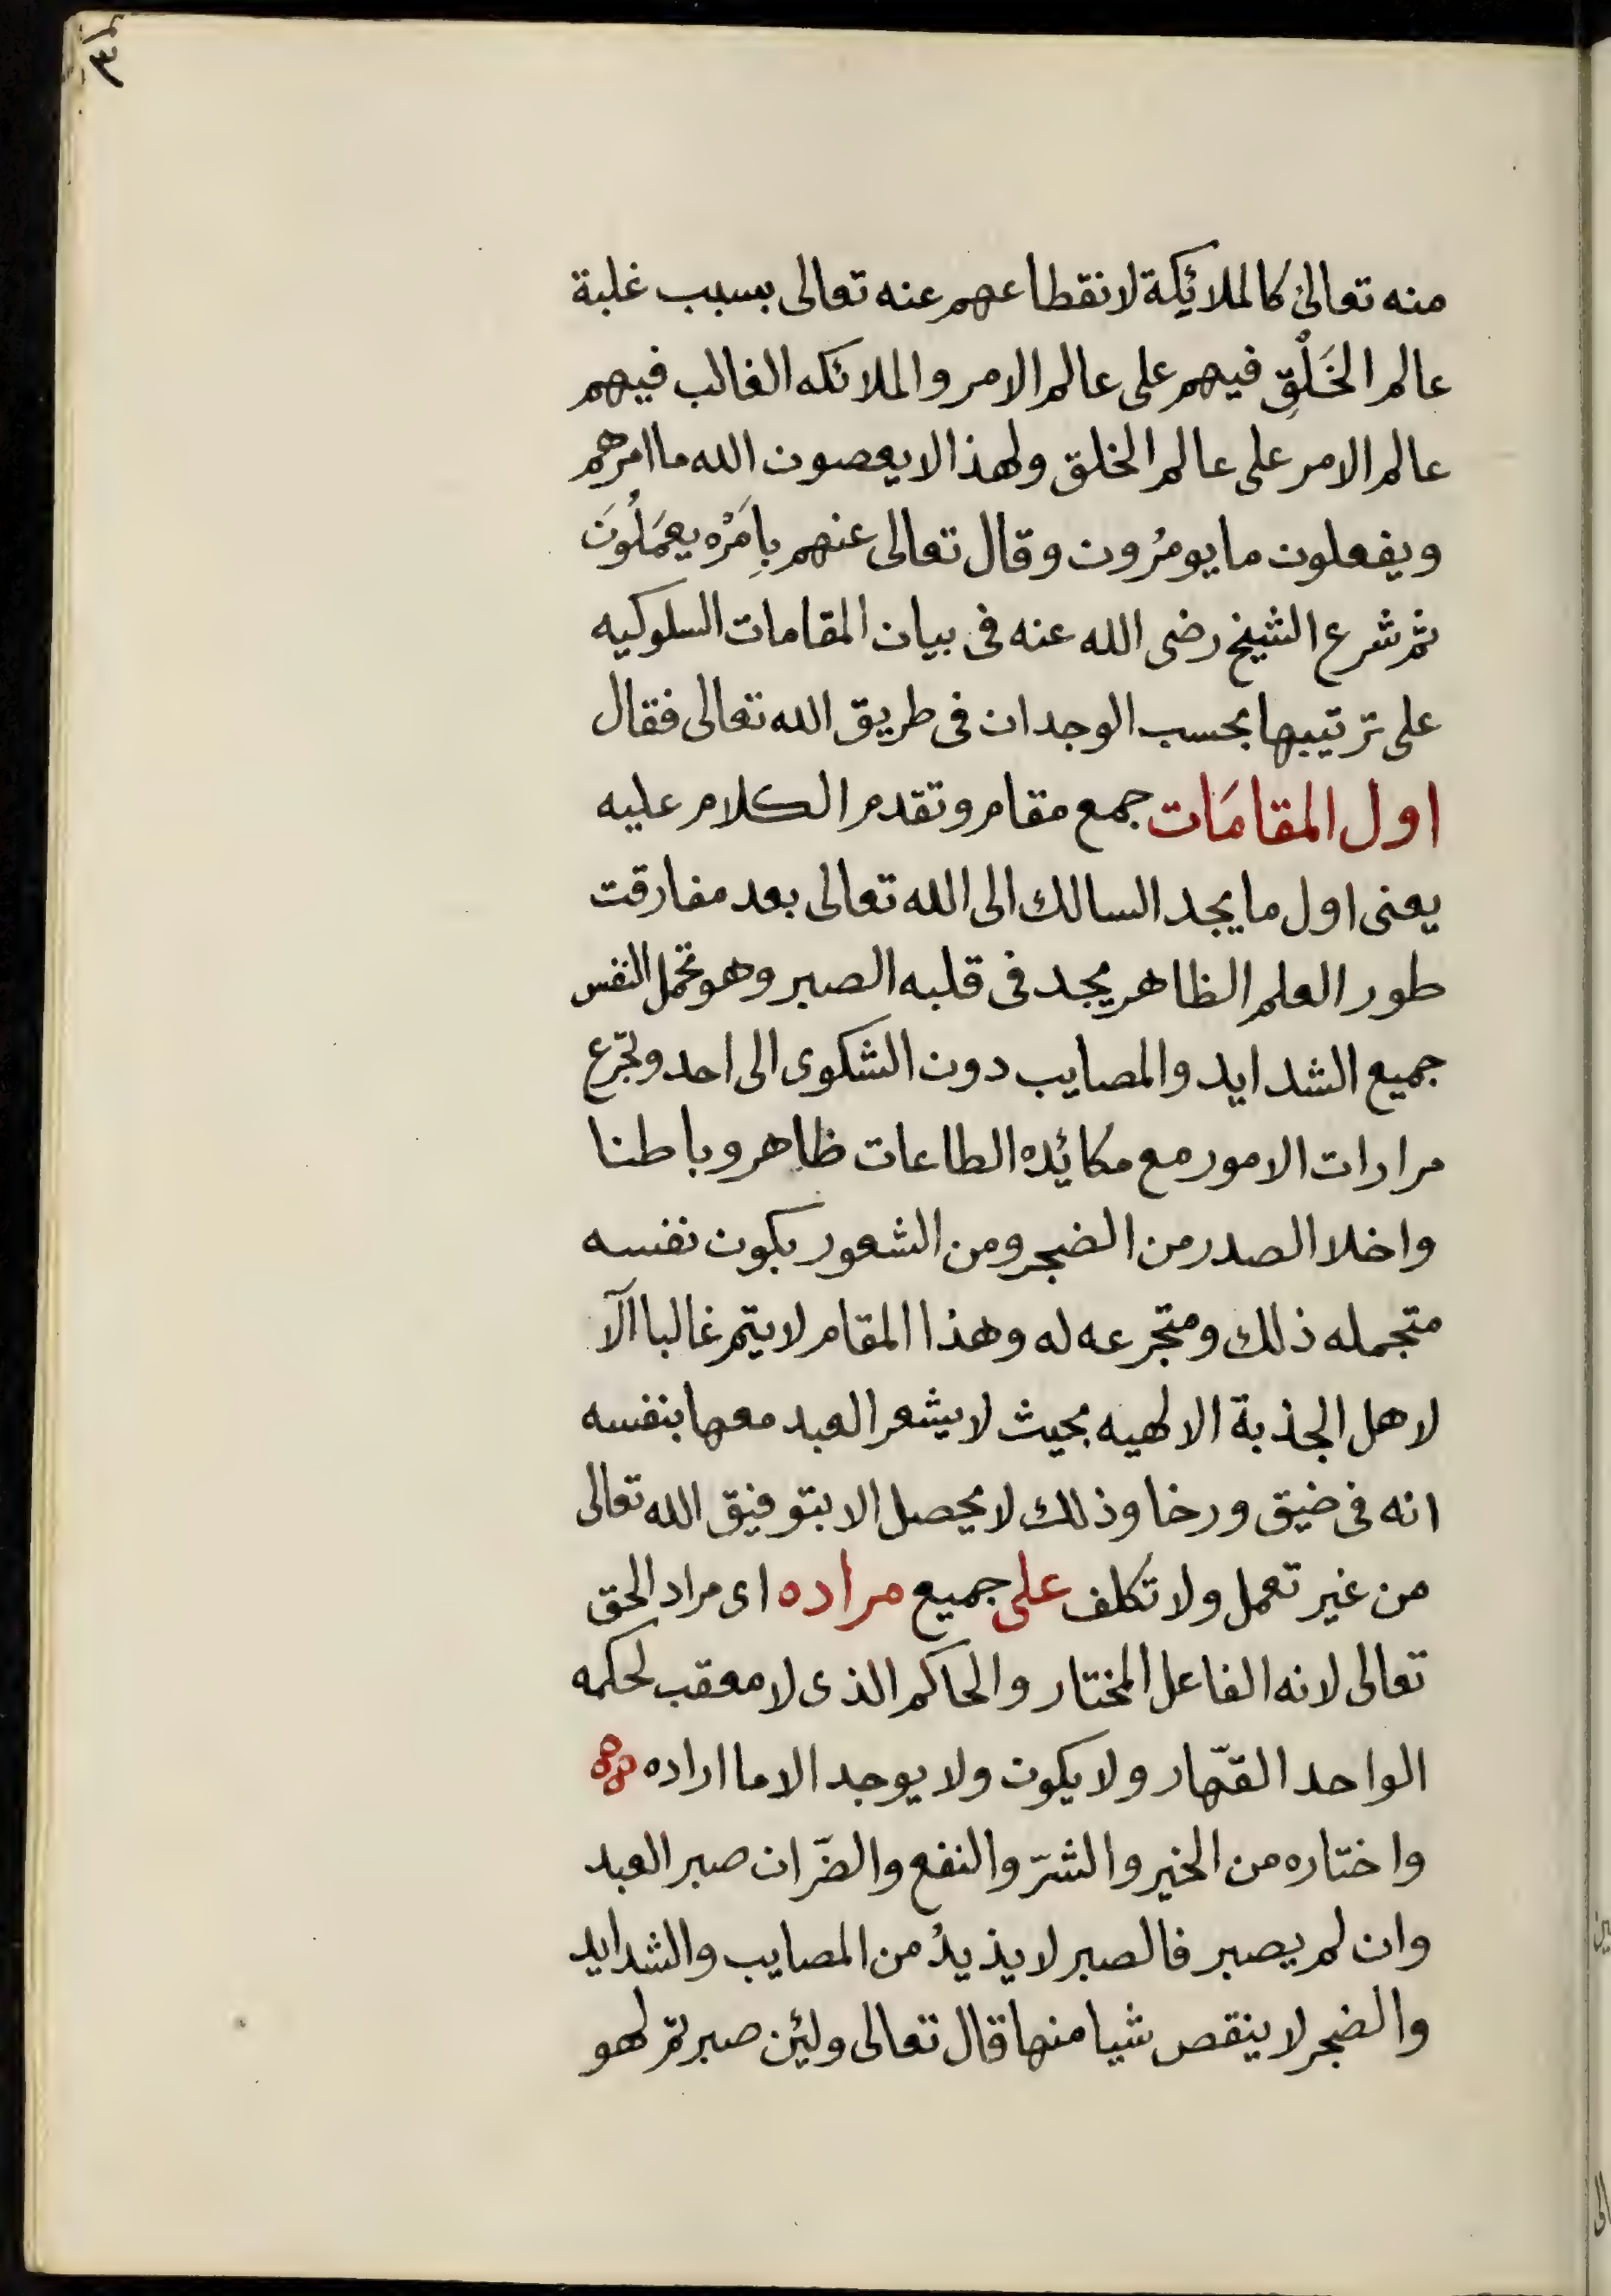 منه تعالى كالملائِكة لانقطاعهم عنه تعالى بسبب غلبة
عالم الخَلْقِ فيهم على عالم الامر والملائكه الغالب فيهم
عالم الامر على عالم الخلق ولهذا لا يعصون الله ما امرهم
ويفعلون ما يومرُون وقال تعالى عنهم بِاَمَرْه يعمَلُونَ
ثم شرع الشيخ رضى الله عنه فى بيان المقامات السلوكيه
على ترتيبها بحسب الوجدان فى طريق الله تعالى فقال
اول المقامَات جمع مقام وتقدم الكلام عليه
يعنى اول ما يجد السالك الى الله تعالى بعد مفارقت
طور العلم الظاهر يجد فى قلبه الصبر وهو تحمل النفس
جميع الشدايد والمصايب دون الشكوى الى احد وتجرّع
مرارات الامور مع مكائده الطاعات ظاهر وباطنا
واخلا الصدر من الضجر ومن الشعور بكون نفسه
متجمله ذلك ومتجرعه له وهذا المقام لا يتم غالبا الّا
لاهل الجذبة الالهيه بحيث لا يشعر العبد معها بنفسه
انه فى ضيق ورخا وذلك لا يحصل الا بتوفيق الله تعالى
من غير تعمل ولا تكلف على جميع مراده اى مراد الحق
تعالى لانه الفاعل المختار والحاكم الذى لا معقب لحكمه
الواحد القهّار ولا يكون ولا يوجد الا ما اراده
واختاره من الخير والشرّ والنفع والضّر ان صبر العبد
وان لم يصبر فالصبر لا يذيدُ من المصايب والشدايد
والضجر لا ينقص شيا منها قال تعالى ولئن صبرتم لهو